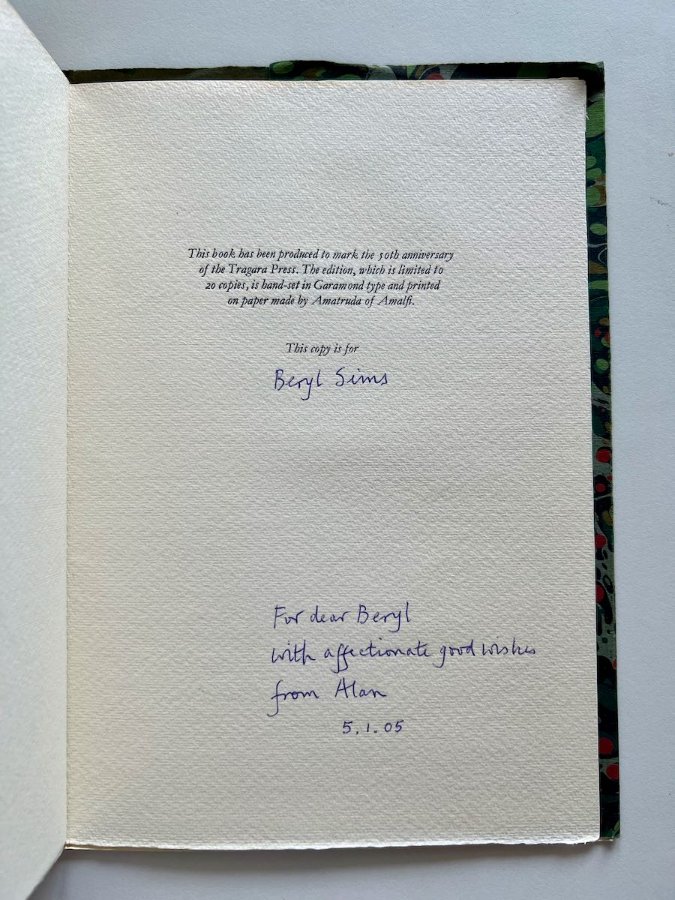 This book has been produced to mark the 50th anniversary
of the Tragara Press. The edition, which is limited to
20 copies, is hand-set in Garamond type and printed
on paper made by Amatruda of Amalfi.
This copy is for
Beryl Sims
For dear Beryl
with affectionate good wishes
from Alan
5.1.05